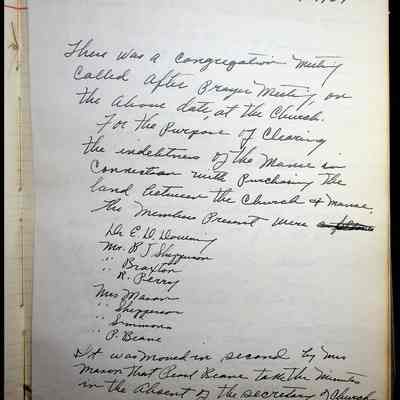 There was a congregation meeting
called after Prayer Meeting, on
the above date, at the Church.
For the Purpose of Clearing
the indebtness of the Manse in
Connection with Purchasing the
land between the Church & manse.
the Members Present were
Dr E. D. Downing
Mr. R J Shepperson
" Braxton
R. Perry
Mrs Mason
" Shepperson
" Simmons
" P. Beane
It was moved in second by Mrs
Mason that Pearl Beane take the Minutes
in the Absent of the secretary of Church